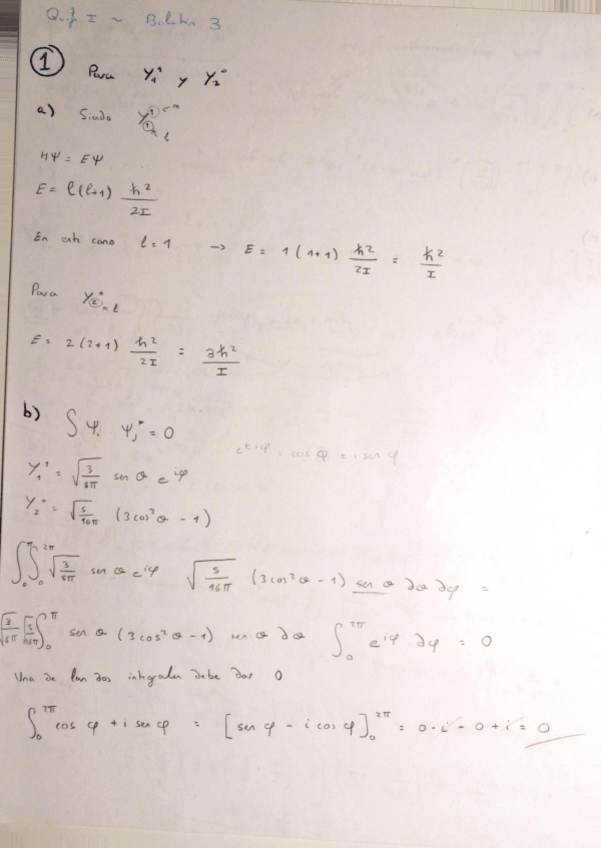 Q.f. I ~ Boletín 3
① Para Y₁¹ y Y₂⁰
a) Siendo Y₁¹ ← m
← l
Hψ = Eψ
E = l(l+1) ħ²/2I
En este caso l = 1 → E = 1(1+1) ħ²/2I = ħ²/I
Para Y₂⁰ ← l
E = 2(2+1) ħ²/2I = 3ħ²/I
b) ∫ψᵢ ψⱼ* = 0
e^(±iφ) = cos φ ± i sen φ
Y₁¹ = √(3/8π) sen θ e^(iφ)
Y₂⁰ = √(5/16π) (3cos²θ - 1)
∫₀^π ∫₀^2π √(3/8π) sen θ e^(iφ) √(5/16π) (3cos²θ - 1) sen θ ∂θ ∂φ =
√(3/8π) √(5/16π) ∫₀^π sen θ (3cos²θ - 1) sen θ ∂θ ∫₀^2π e^(iφ) ∂φ = 0
Una de las dos integrales debe dar 0
∫₀^2π cos φ + i sen φ = [sen φ - i cos φ]₀^2π = 0 - i - 0 + i = 0